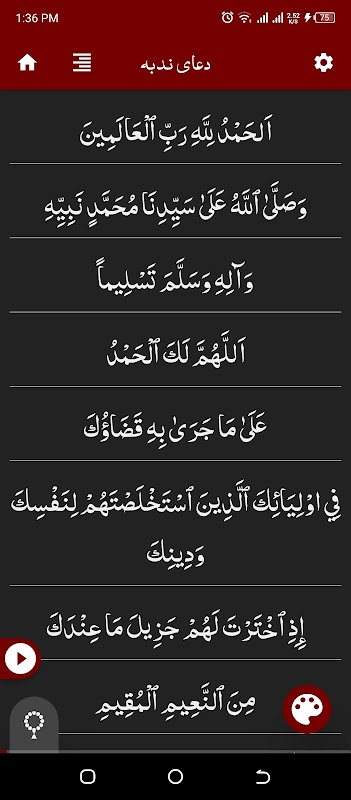 1:36 PM 2.52 K/S 75
دعای ندبه
اَلْحَمْدُ لِلَّهِ رَبِّ ٱلْعَالَمِينَ
وَصَلَّىٰ ٱللَّهُ عَلَىٰ سَيِّدِنَا مُحَمَّدٍ نَبِيِّهِ
وَآلِهِ وَسَلَّمَ تَسْلِيماً
اَللَّهُمَّ لَكَ ٱلْحَمْدُ
عَلَىٰ مَا جَرَىٰ بِهِ قَضَاؤُكَ
فِي اوْلِيَائِكَ ٱلَّذِينَ ٱسْتَخْلَصْتَهُمْ لِنَفْسِكَ
وَدِينِكَ
إِذِ ٱخْتَرْتَ لَهُمْ جَزِيلَ مَا عِنْدَكَ
مِنَ ٱلنَّعِيمِ ٱلْمُقِيمِ